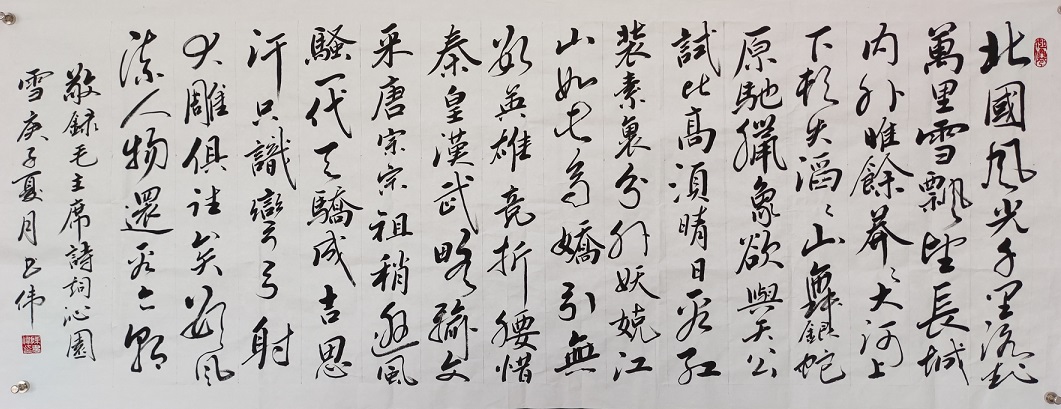 北國风光千里冰封
萬里雪飄望長城
内外唯餘莽〻大河上
下頓失滔〻山舞銀蛇
原馳臘象欲與天公
試比高須晴日看紅
裝素裹分外妖嬈江
山如此多嬌引無
數英雄競折腰惜
秦皇漢武略輸文
采唐宗宋祖稍遜風
騷一代天驕成吉思
汗只識彎弓射
大雕俱往矣數风
流人物還看今朝
敬録毛主席詩詞沁園
雪庚子夏月书伟